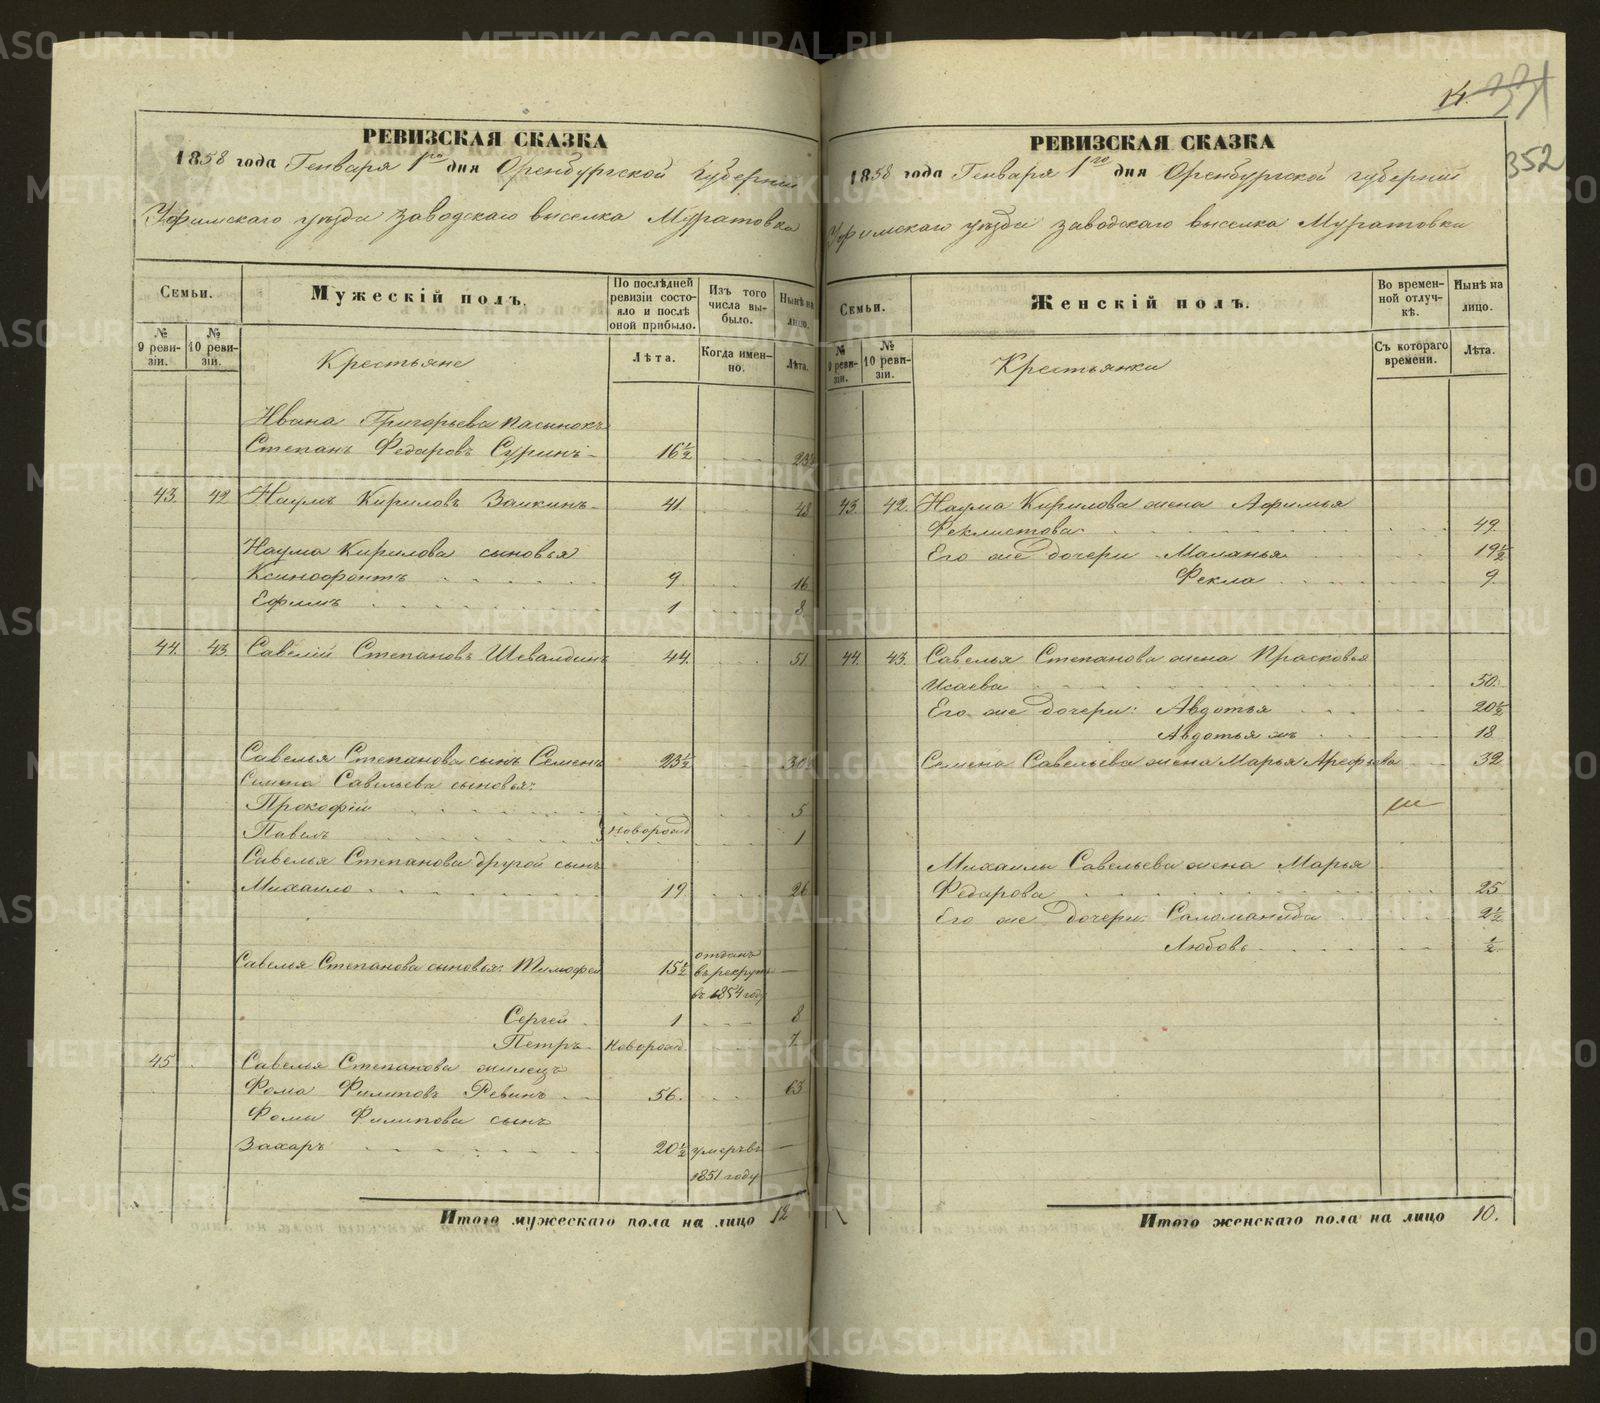 14. 331
352
РЕВИЗСКАЯ СКАЗКА
1858 года Генваря 1го дня Оренбургской губернии
Уфимскаго уѣзда заводскаго выселка Муратовка
Семьи.
Мужескій полъ.
По послѣдней ревизіи состояло и послѣ оной прибыло.
Изъ того числа выбыло.
Нынѣ на лицо.
№ 9 ревизіи.
№ 10 ревизіи.
Крестьяне
Лѣта.
Когда именно.
Лѣта.
Ивана Григорьева пасынокъ
Степанъ Федаровъ Суринъ 16½ 23½
43. 42 Наумъ Кириловъ Заикинъ 41. 48
Наума Кирилова сыновья
Ксинофонтъ 9 16
Ефимъ 1 8
44. 43. Савелій Степановъ Шевалдинъ 44. 51.
Савелья Степанова сынъ Семенъ 23½ 30½
Семена Савельева сыновья:
Прокофій 5
Павелъ } новорожд 1
Савелья Степанова другой сынъ
Михаило 19. 26
Савелья Степанова сыновья: Тимофей 15½ отданъ въ рекруты въ 1854 году
Сергей 1 8
Петръ новорожд. 7.
45 Савелья Степанова жилецъ
Фома Филиповъ Ревинъ 56. 63
Фомы Филипова сынъ
Захаръ 20½ умеръ въ 1851 году
Итого мужескаго пола на лицо 12
РЕВИЗСКАЯ СКАЗКА
1858 года Генваря 1го дня Оренбургской губернии
Уфимскаго уѣзда заводскаго выселка Муратовки
Семьи.
Женскій полъ.
Во временной отлучкѣ.
Нынѣ на лицо.
№ 9 ревизіи.
№ 10 ревизіи.
Крестьянки
Съ котораго времени.
Лѣта.
43. 42. Наума Кирилова жена Афимья
Феклистова 49.
Его же дочери Маланья 19½
Фекла 9
44. 43. Савелья Степанова жена Прасковья
Исаева 50.
Его же дочери: Авдотья 20½
Авдотья жъ 18
Семена Савельева жена Марья Арефьева 32
Михаилы Савельева жена Марья
Федарова 25
Его же дочери: Саломанида 2½
Любовь ½
Итого женскаго пола на лицо 10.
METRIKI.GASO-URAL.RU